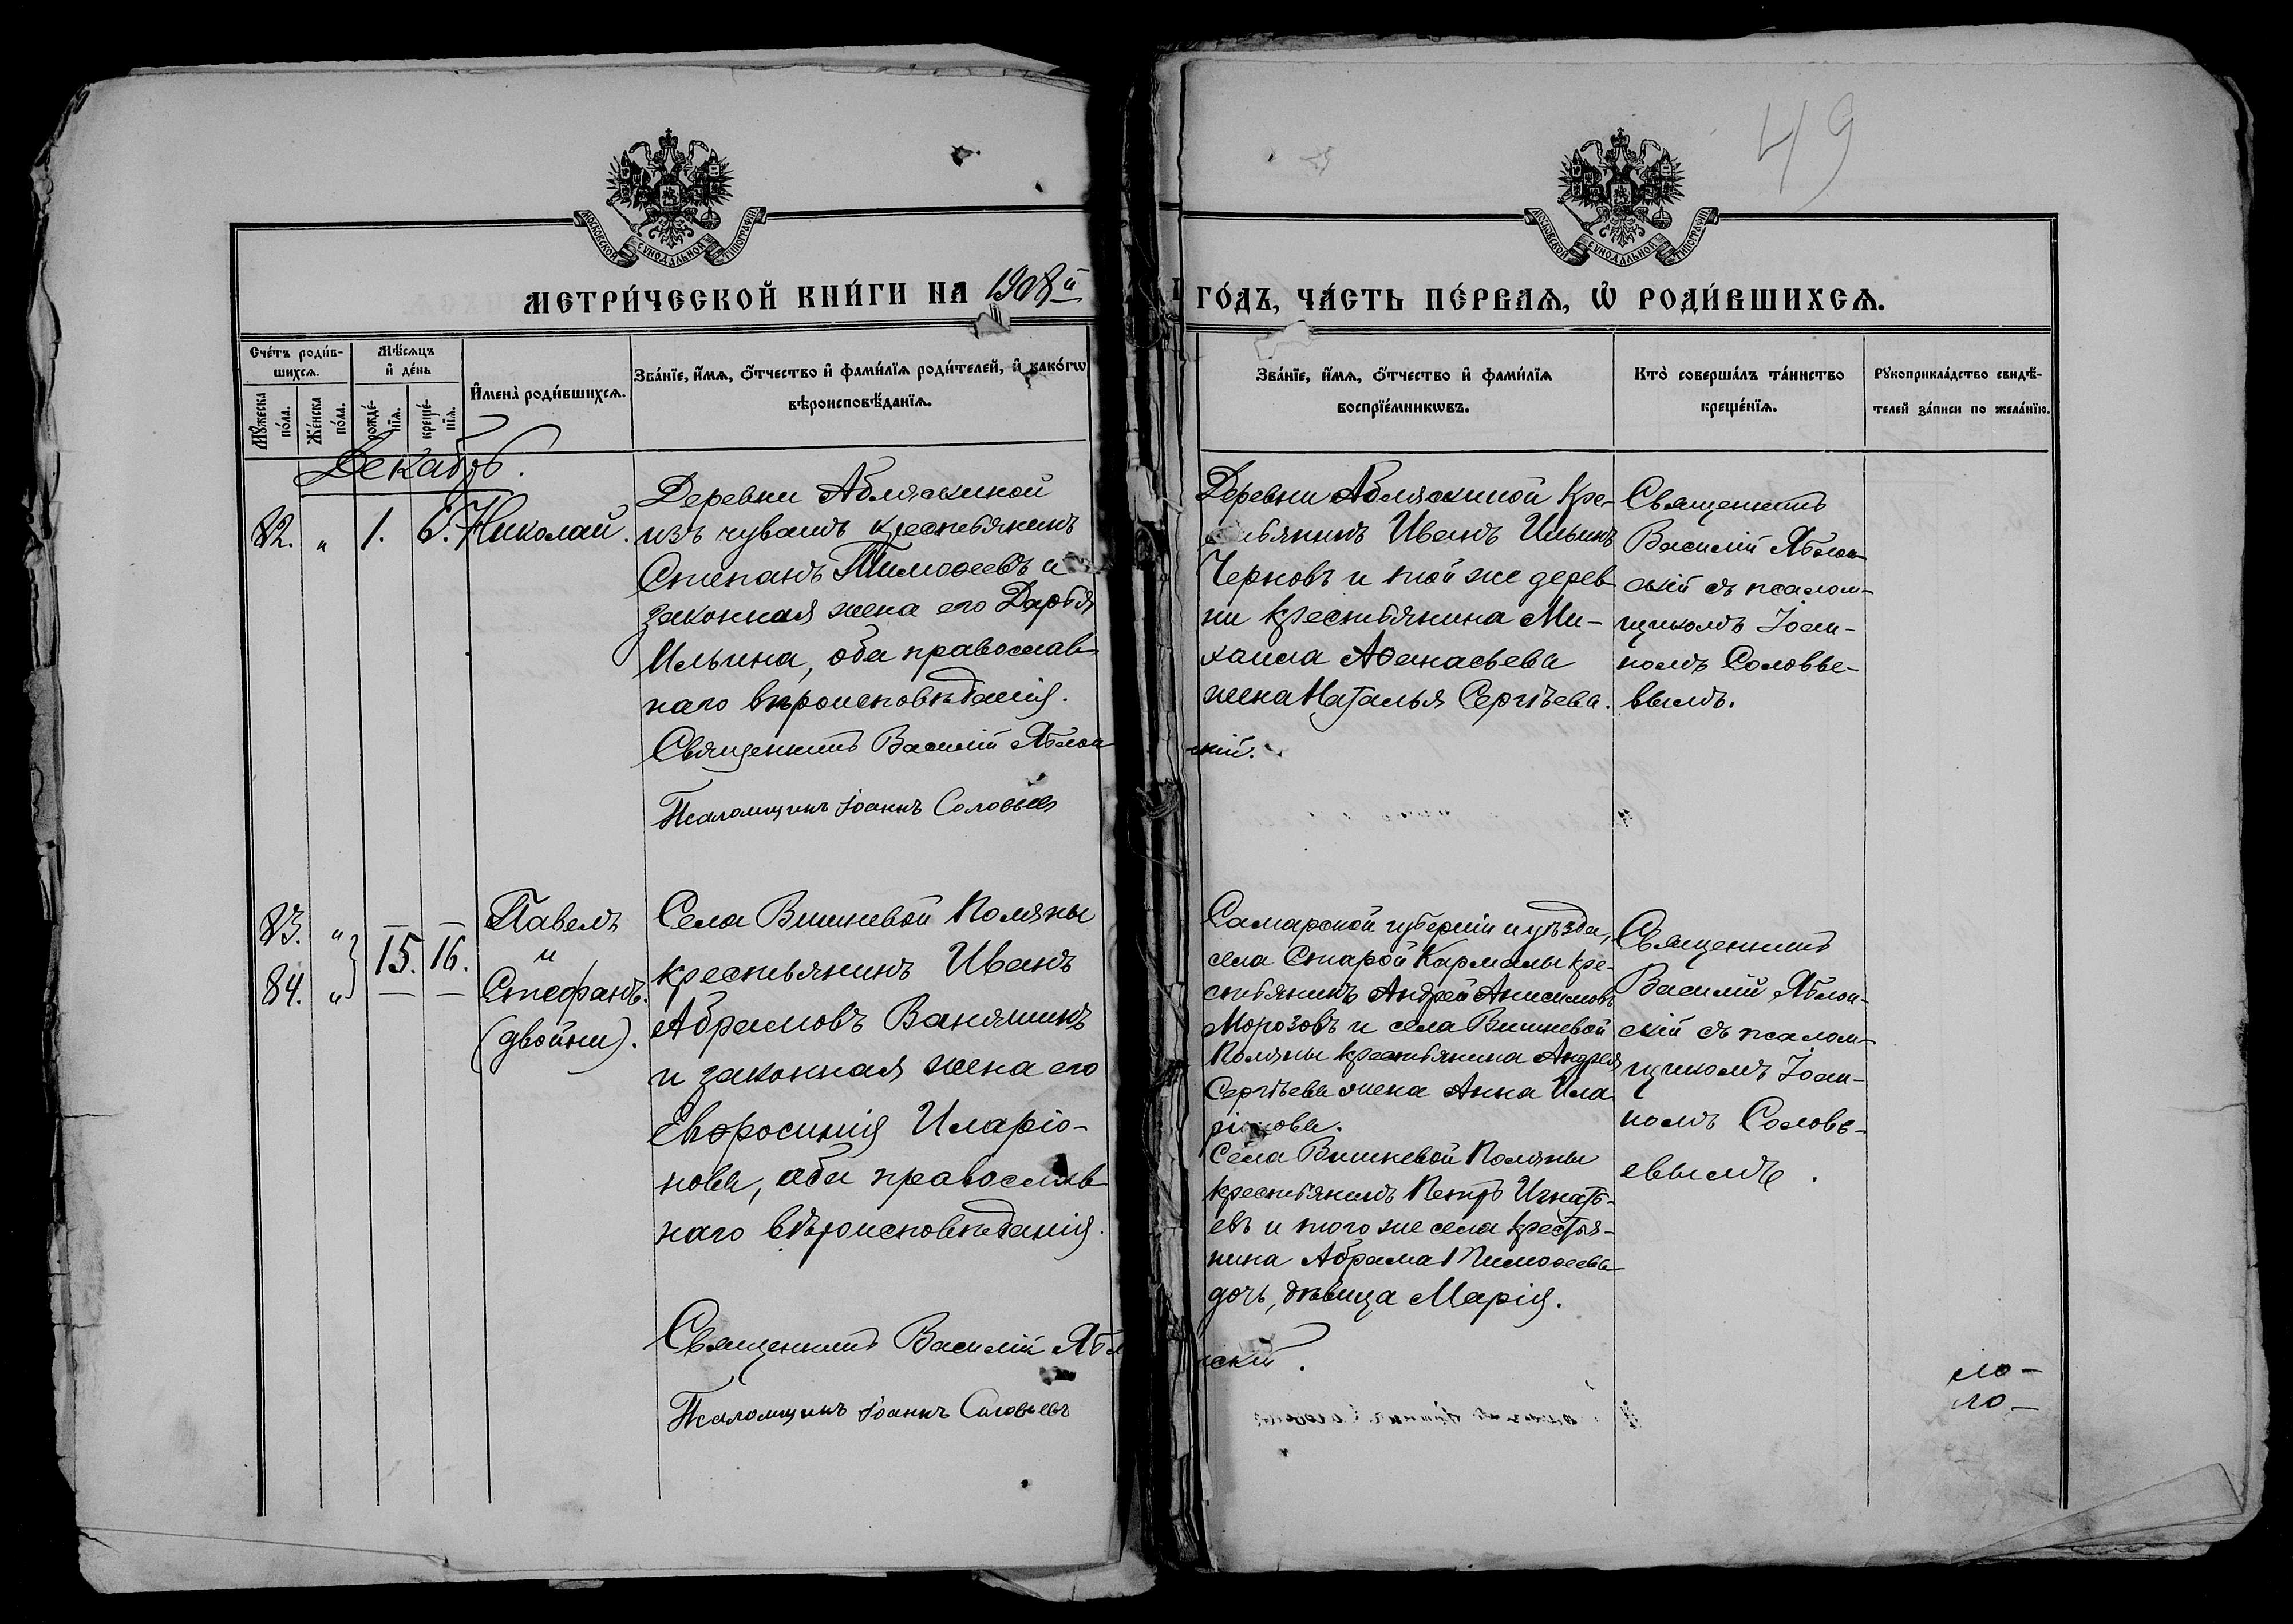 49
МОСКОВСКОЙ СѴНОДАЛЬНОЙ ТИПОГРАФІИ
МОСКОВСКОЙ СѴНОДАЛЬНОЙ ТИПОГРАФІИ
МЕТРИ́ЧЕСКОЙ КНИ́ГИ НА 1908й
ГО́ДЪ, ЧА́СТЬ ПЕ́РВАѦ, Ѡ҆ РОДИ́ВШИХСѦ.
Сче́тъ роди́в-
шихсѧ.
Мꙋ́жеска по́ла.
Же́нска по́ла.
Мѣ́сѧцъ
и҆ де́нь
рожде́-
нїѧ.
креще́-
нїѧ.
И҆мена̀ роди́вшихсѧ.
Зва́нїе, и҆́мѧ, ѻ҆́тчество и҆ фами́лїѧ роди́телей, и҆ како́гѡ
вѣроисповѣ́данїѧ.
Зва́нїе, и҆́мѧ, ѻ҆́тчество и҆ фами́лїѧ
воспрїе́мникѡвъ.
Кто̀ соверша́лъ та́инство
креще́нїѧ.
Рꙋкоприкла́дство свидѣ́-
телей за́писи по жела́нїю.
Декабрь.
82. " 1. 6. Николай.
Деревни Абляскиной
изъ чувашъ крестьянинъ
Степанъ Тимоѳеевъ и
законная жена его Дарья
Ильина, оба православ-
наго вѣроисповѣданія.
Священникъ Василій Яблон
скій.
Псаломщикъ Іоаннъ Соловьевъ
Деревни Абляскиной кре-
стьянинъ Иванъ Ильинъ
Черновъ и той же дерев
ни крестьянина Ми-
хаила Аѳанасьева
жена Наталья Сергѣева.
Священникъ
Василій Яблон
скій съ псалом-
щикомъ Іоан-
номъ Соловье-
вымъ.
83. "
84. "
15. 16.
Павелъ
и
Стефанъ.
(двойни).
Села Вишневой Поляны
крестьянинъ Иванъ
Абрамовъ Ваняшинъ
и законная жена его
Евфросинія Иларіо-
нова, оба православ
наго вѣроисповѣданія.
Священникъ Василій Ябл
нскій.
Псаломщикъ Іоаннъ Соловьевъ
Самарской губерніи и уѣзда,
села Старой Кармалы кре-
стьянинъ Андрей Анисимовъ
Морозовъ и села Вишневой
Поляны крестьянина Андрея
Сергѣева жена Анна Ила
ріонова.
Села Вишневой Поляны
крестьянинъ Петръ Игнать-
евъ и того же села крестья-
нина Абрама Тимоѳеева
дочь, дѣвица Марія.
Священникъ
Василій Яблон-
скій съ псалом-
щикомъ Іоан-
номъ Соловь-
евымъ.
ло-
ло-